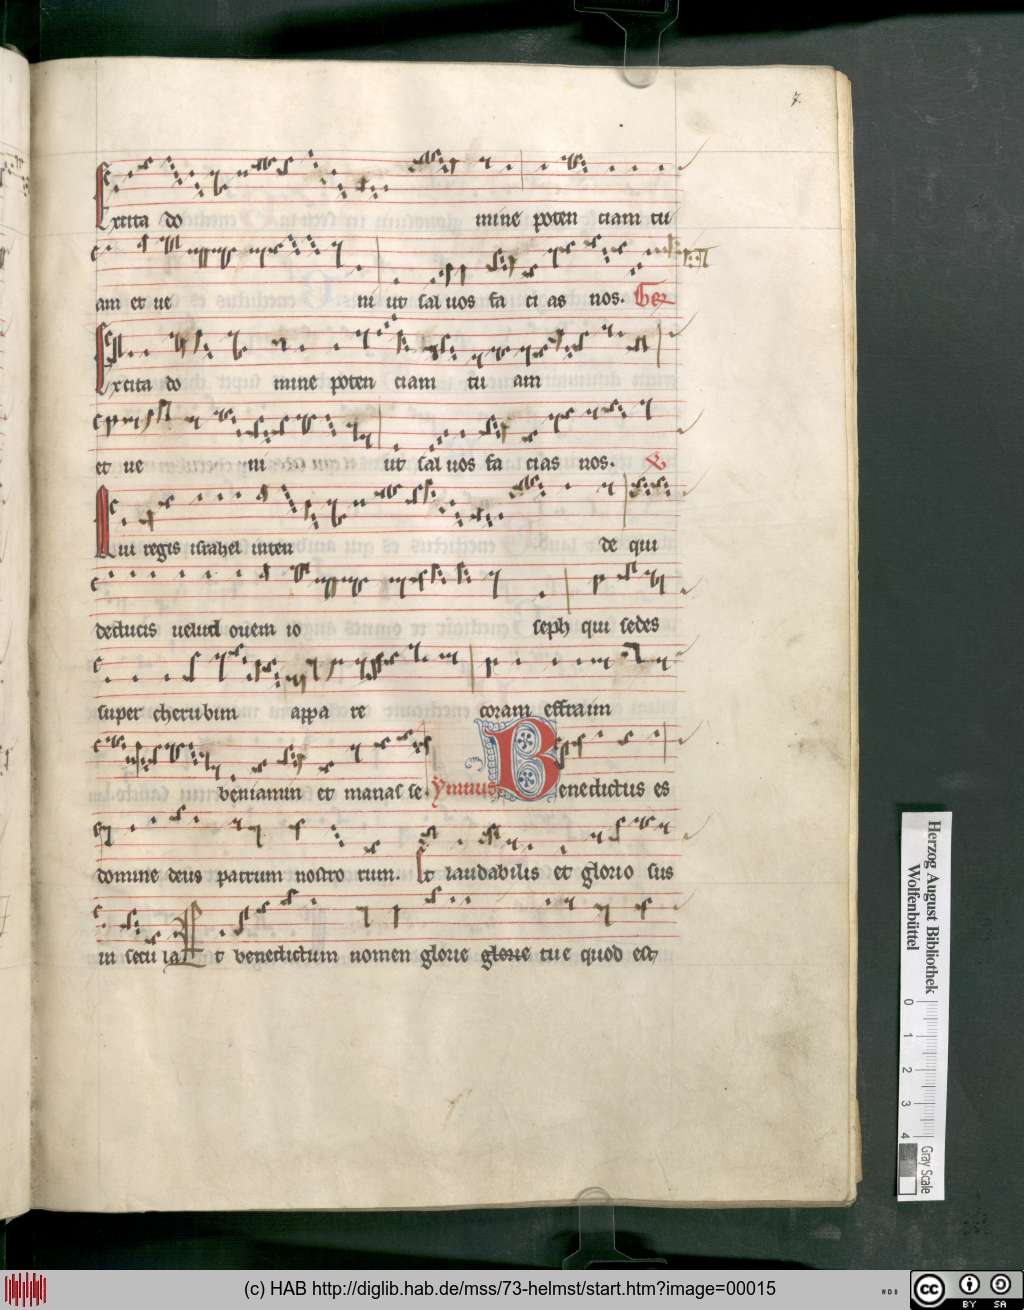 7.
Excita do mine poten ciam tu
am et ue ni ut sal uos fa ci as nos. Ger
Excita do mine poten ciam tu am
et ue ni ut sal uos fa cias nos. V
Qui regis israhel inten de qui
deducis uelud ouem io seph qui sedes
super cherubim appa re coram effraim
beniamin et manas se. Ymnus Benedictus es
domine deus patrum nostro rum. Et laudabilis et glorio sus
in secu la Et benedictum nomen glorie glorie tue quod est
Herzog August Bibliothek
Wolfenbüttel
0 1 2 3 4
Gray Scale
(c) HAB http://diglib.hab.de/mss/73-helmst/start.htm?image=00015
cc BY SA